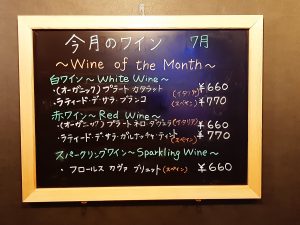 今月のワイン 7月
～Wine of the Month～
白ワイン～White Wine～
・(オーガニック) プラート カタラット (イタリア) ¥660
・ラティード・デ・サラ・ブランコ (スペイン) ¥770
赤ワイン～Red Wine～
・(オーガニック) プラート ネロ ダヴォラ (イタリア) ¥660
・ラティード・デ・サラ・ガルナッチャ・ティント (スペイン) ¥770
スパークリングワイン～Sparkling Wine～
・フロールス カヴァ ブリュット (スペイン) ¥660